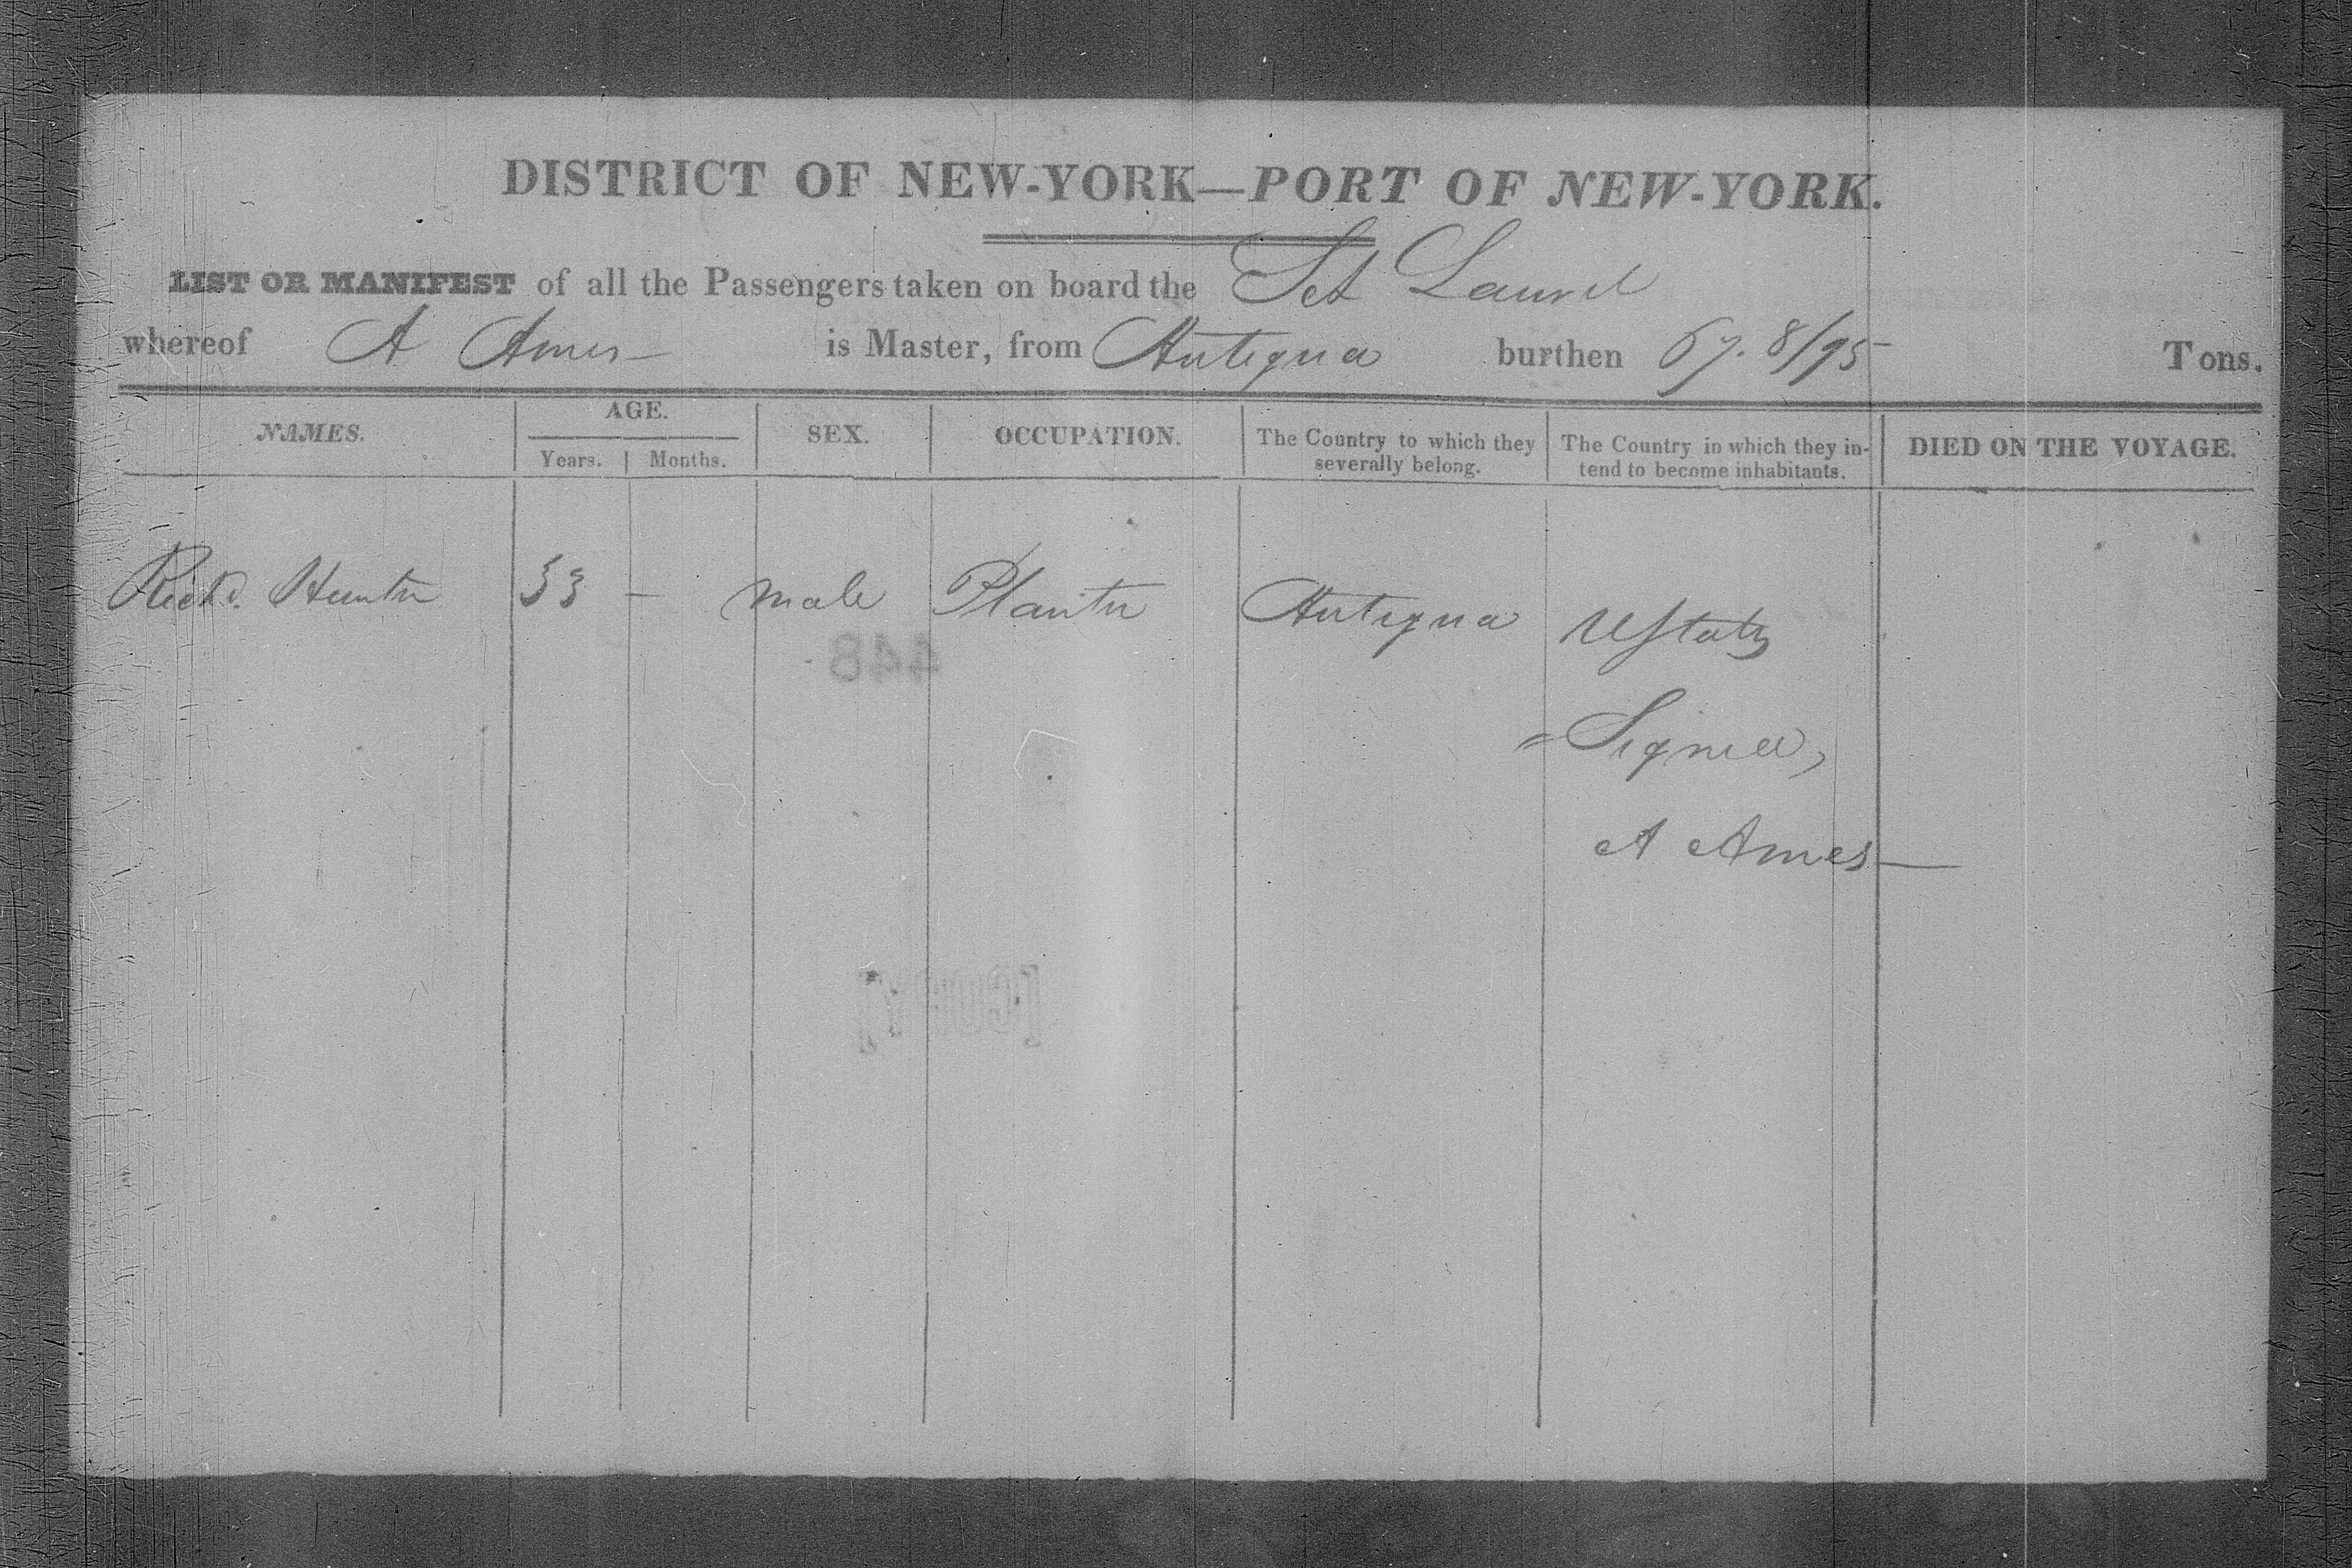 DISTRICT OF NEW-YORK—PORT OF NEW-YORK.
LIST OR MANIFEST of all the Passengers taken on board the Sch Laurel
whereof A Ames is Master, from Antigua burthen 67. 8/95 Tons.
NAMES. AGE. SEX. OCCUPATION. The Country to which they severally belong. The Country in which they intend to become inhabitants. DIED ON THE VOYAGE.
Years. Months.
Richd. Hunter 33 — male Planter Antigua UStates
448
Signed,
A Ames
[COPY]